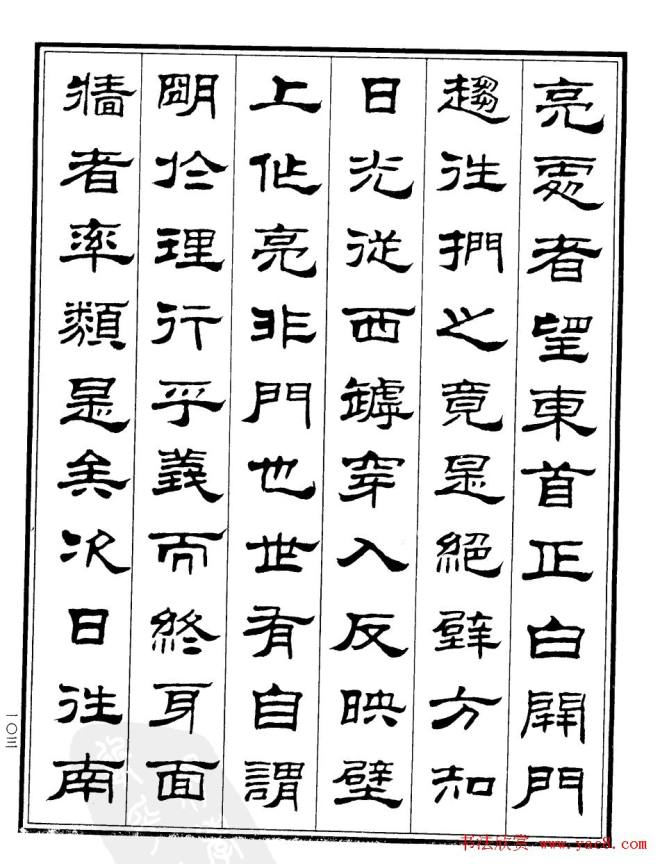 亮處者望東首正白開門
趨往捫之竟是絕壁方知
日光從西罅穿入反映壁
上作亮非門也世有自謂
明於理行乎義而終身面
牆者率類是矣次日往南
一〇三
书法欣赏 www.yac8.com